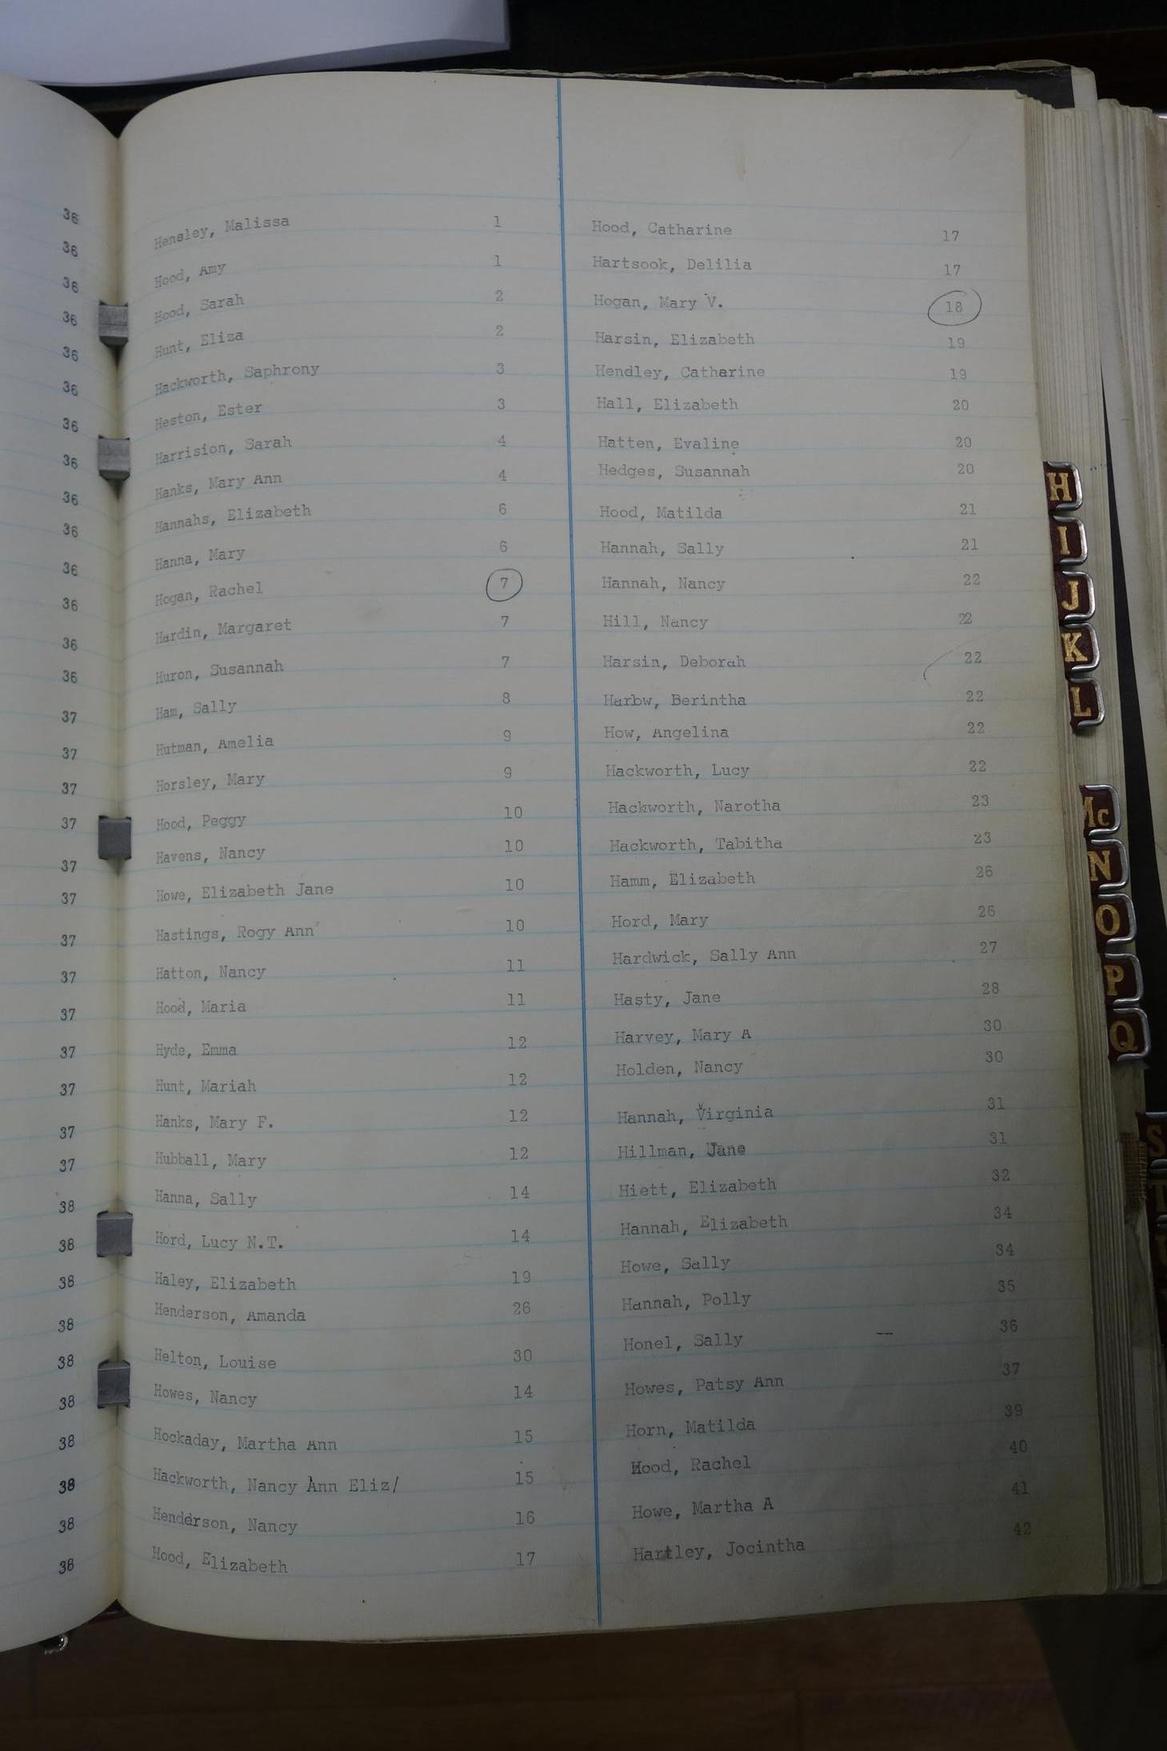 36
36
36
36
36
36
36
36
36
36
36
36
36
36
37
37
37
37
37
37
37
37
37
37
37
37
37
38
38
38
38
38
38
38
38
38
38
Hensley, Malissa 1
Hood, Amy 1
Hood, Sarah 2
Hunt, Eliza 2
Hackworth, Saphrony 3
Heston, Ester 3
Harrision, Sarah 4
Hanks, Mary Ann 4
Hannahs, Elizabeth 6
Hanna, Mary 6
Hogan, Rachel 7
Hardin, Margaret 7
Huron, Susannah 7
Ham, Sally 8
Hutman, Amelia 9
Horsley, Mary 9
Hood, Peggy 10
Havens, Nancy 10
Howe, Elizabeth Jane 10
Hastings, Rogy Ann 10
Hatton, Nancy 11
Hood, Maria 11
Hyde, Emma 12
Hunt, Mariah 12
Hanks, Mary F. 12
Hubball, Mary 12
Hanna, Sally 14
Hord, Lucy N.T. 14
Haley, Elizabeth 19
Henderson, Amanda 26
Helton, Louise 30
Howes, Nancy 14
Hockaday, Martha Ann 15
Hackworth, Nancy Ann Eliz/ 15
Henderson, Nancy 16
Hood, Elizabeth 17
Hood, Catharine 17
Hartsook, Delilia 17
Hogan, Mary V. 18
Harsin, Elizabeth 19
Hendley, Catherine 19
Hall, Elizabeth 20
Hatten, Evaline 20
Hedges, Susannah 20
Hood, Matilda 21
Hannah, Sally 21
Hannah, Nancy 22
Hill, Nancy 22
Harsin, Deborah 22
Harbw, Berintha 22
How, Angelina 22
Hackworth, Lucy 22
Hackworth, Narotha 23
Hackworth, Tabitha 23
Hamm, Elizabeth 26
Hord, Mary 26
Hardwick, Sally Ann 27
Hasty, Jane 28
Harvey, Mary A 30
Holden, Nancy 30
Hannah, Virginia 31
Hillman, Jane 31
Hiett, Elizabeth 32
Hannah, Elizabeth 34
Howe, Sally 34
Hannah, Polly 35
Honel, Sally -- 36
Howes, Patsy Ann 37
Horn, Matilda 39
Hood, Rachel 40
Howe, Martha A 41
Hartley, Jocintha 42
H
I
J
K
L
Mc
N
O
P
Q
S
T